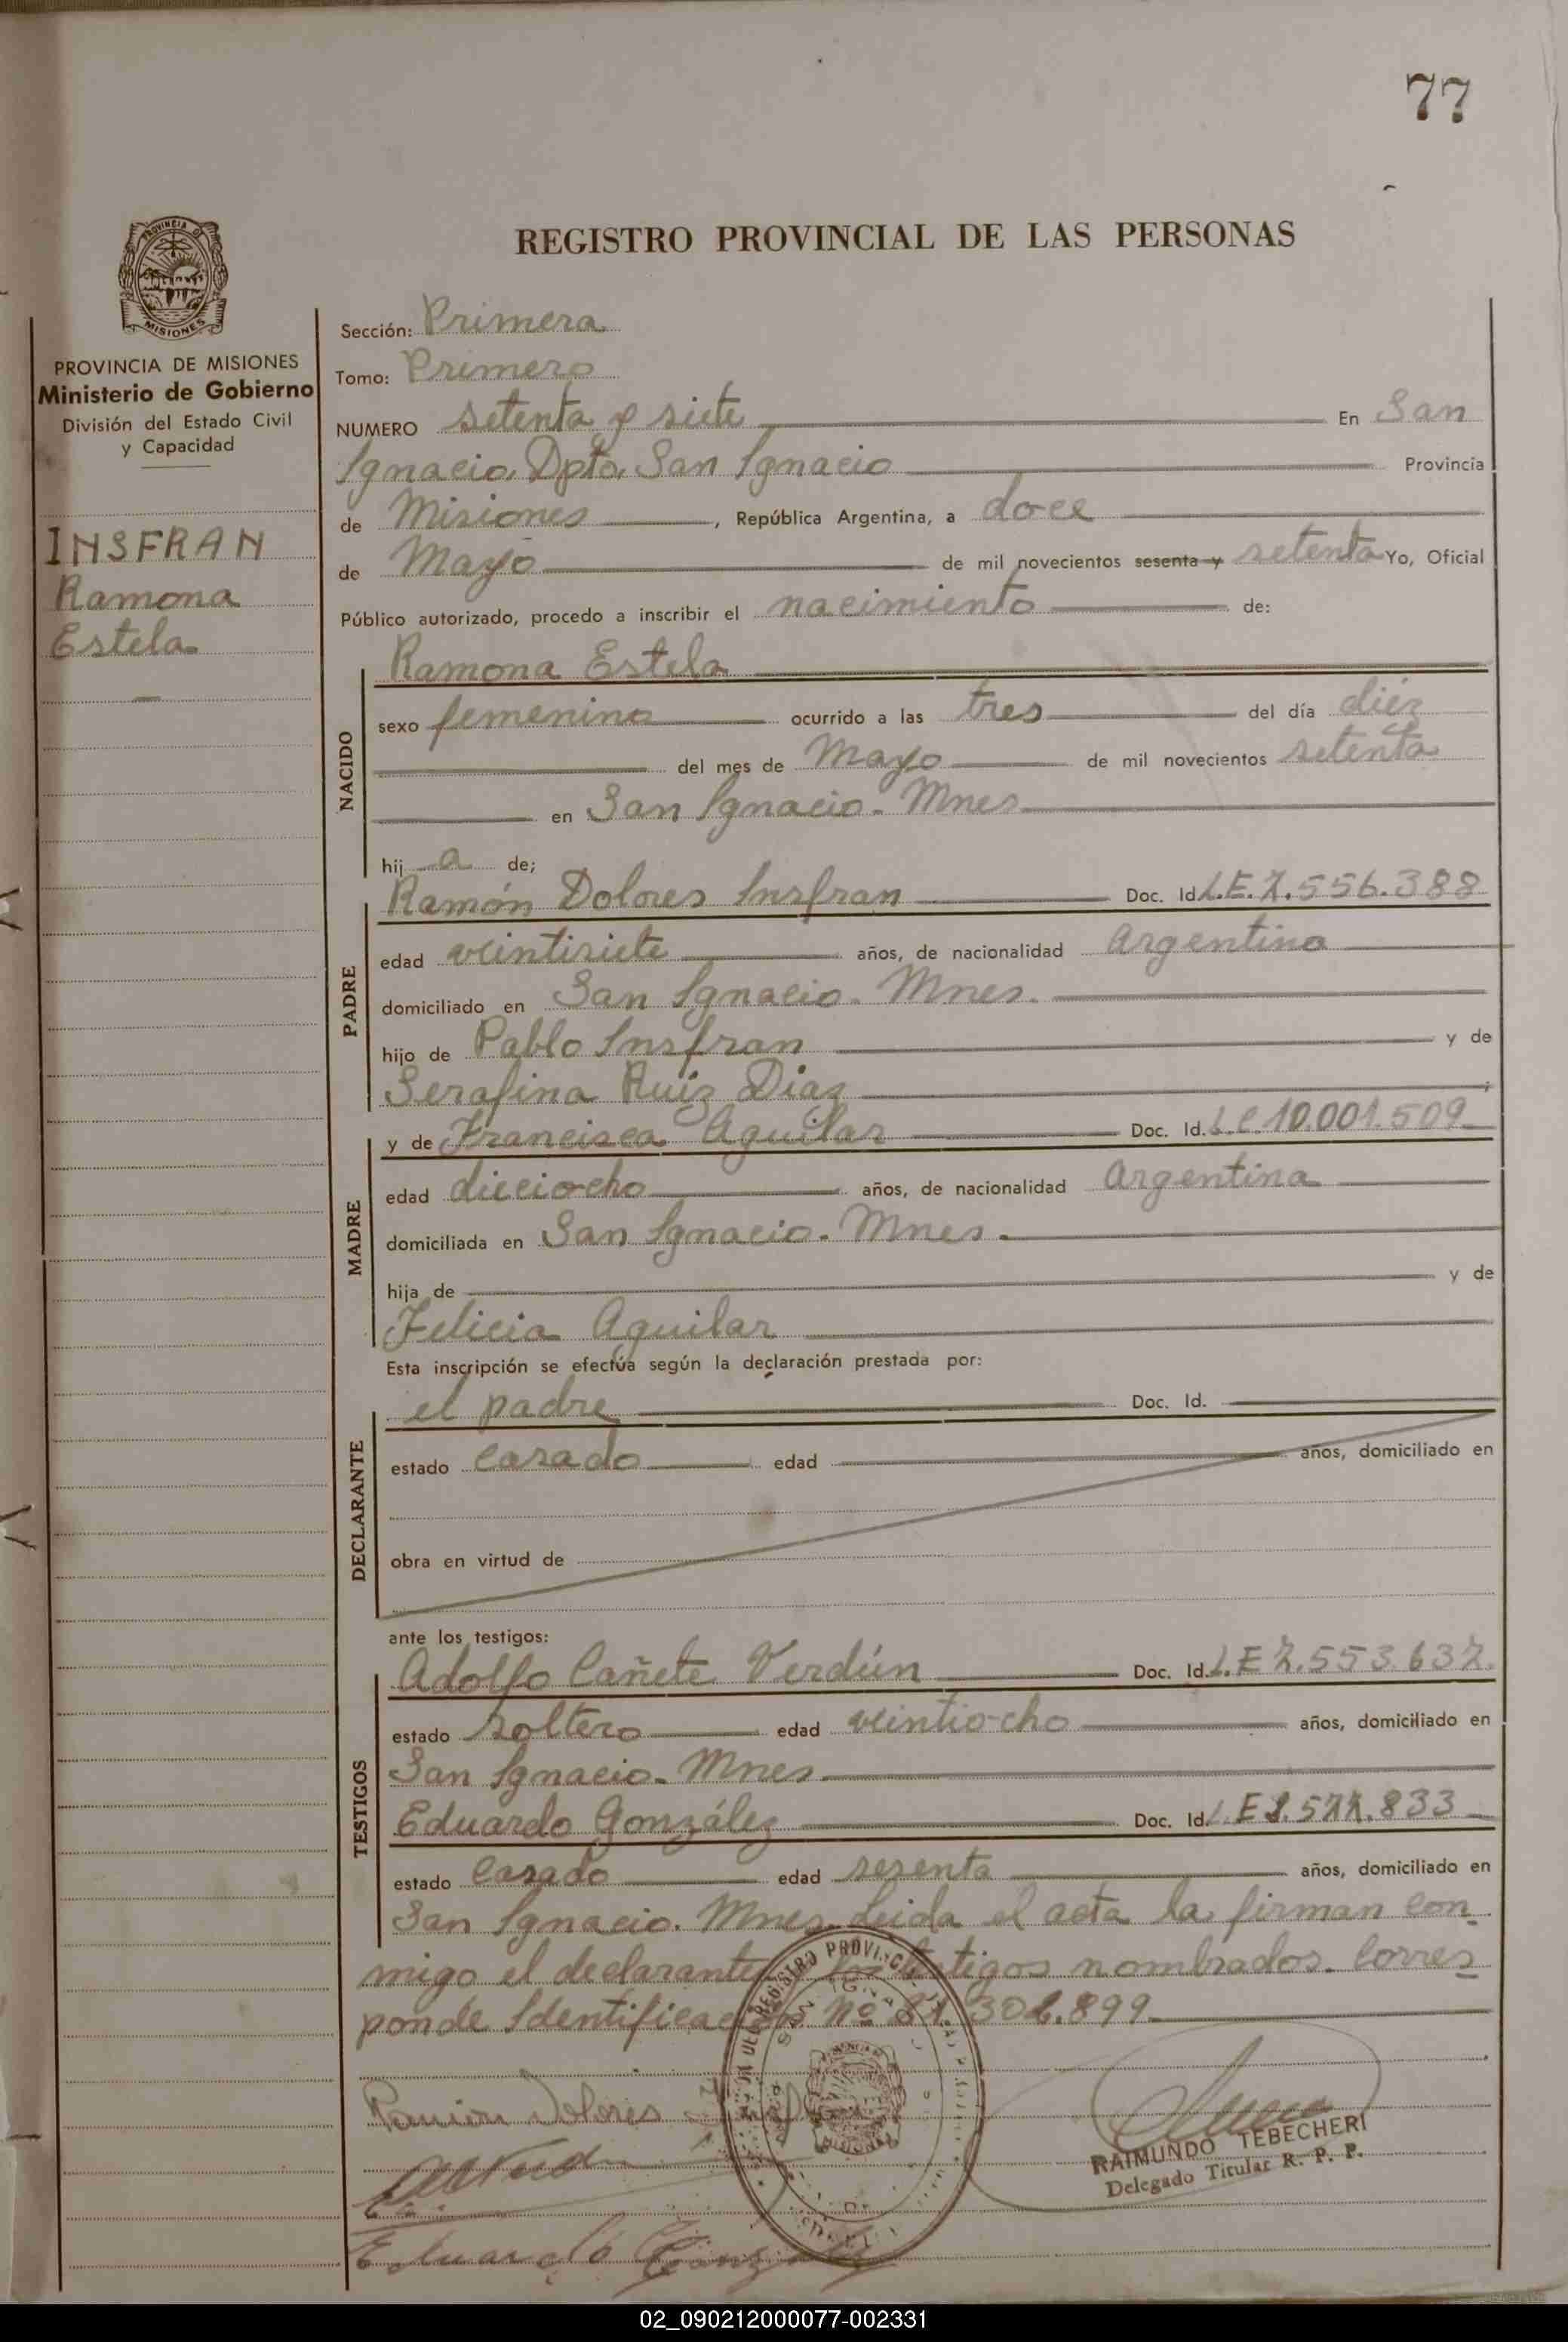 77
REGISTRO PROVINCIAL DE LAS PERSONAS
PROVINCIA DE MISIONES
Ministerio de Gobierno
División del Estado Civil
y Capacidad
INSFRAN
Ramona
Estela
Sección: Primera
Tomo: Primero
NUMERO setenta y siete En San
Ignacio, Dpto. San Ignacio Provincia
de Misiones, República Argentina, a doce
de Mayo de mil novecientos sesenta y setenta Yo, Oficial
Público autorizado, procedo a inscribir el nacimiento de:
Ramona Estela
NACIDO
sexo femenino ocurrido a las tres del día diéz
del mes de Mayo de mil novecientos setenta
en San Ignacio. Mnes.
hij a de;
PADRE
Ramón Dolores Insfran Doc. Id. L.E. 7.556.388
edad veintisiete años, de nacionalidad Argentina
domiciliado en San Ignacio. Mnes.
hijo de Pablo Insfran y de
Serafina Ruiz Diaz
MADRE
y de Francisca Aguilar Doc. Id. L.C 10.001.509
edad dieciocho años, de nacionalidad Argentina
domiciliada en San Ignacio. Mnes.
hija de y de
Felicia Aguilar
Esta inscripción se efectúa según la declaración prestada por:
DECLARANTE
el padre Doc. Id.
estado casado edad años, domiciliado en
obra en virtud de
ante los testigos:
TESTIGOS
Adolfo Cañete Verdún Doc. Id. L.E 7.553.637.
estado soltero edad veintiocho años, domiciliado en
San Ignacio. Mnes.
Eduardo González Doc. Id. L.E
estado casado edad sesenta años, domiciliado en
San Ignacio. Mnes. Leida el acta la firman con
migo el declarante y los testigos nombrados. Corres
ponde Identificación Nº
Ramón Dolores
RAIMUNDO TEBECHERI
Delegado Titular R. P. P.
Eduardo
02_090212000077-002331